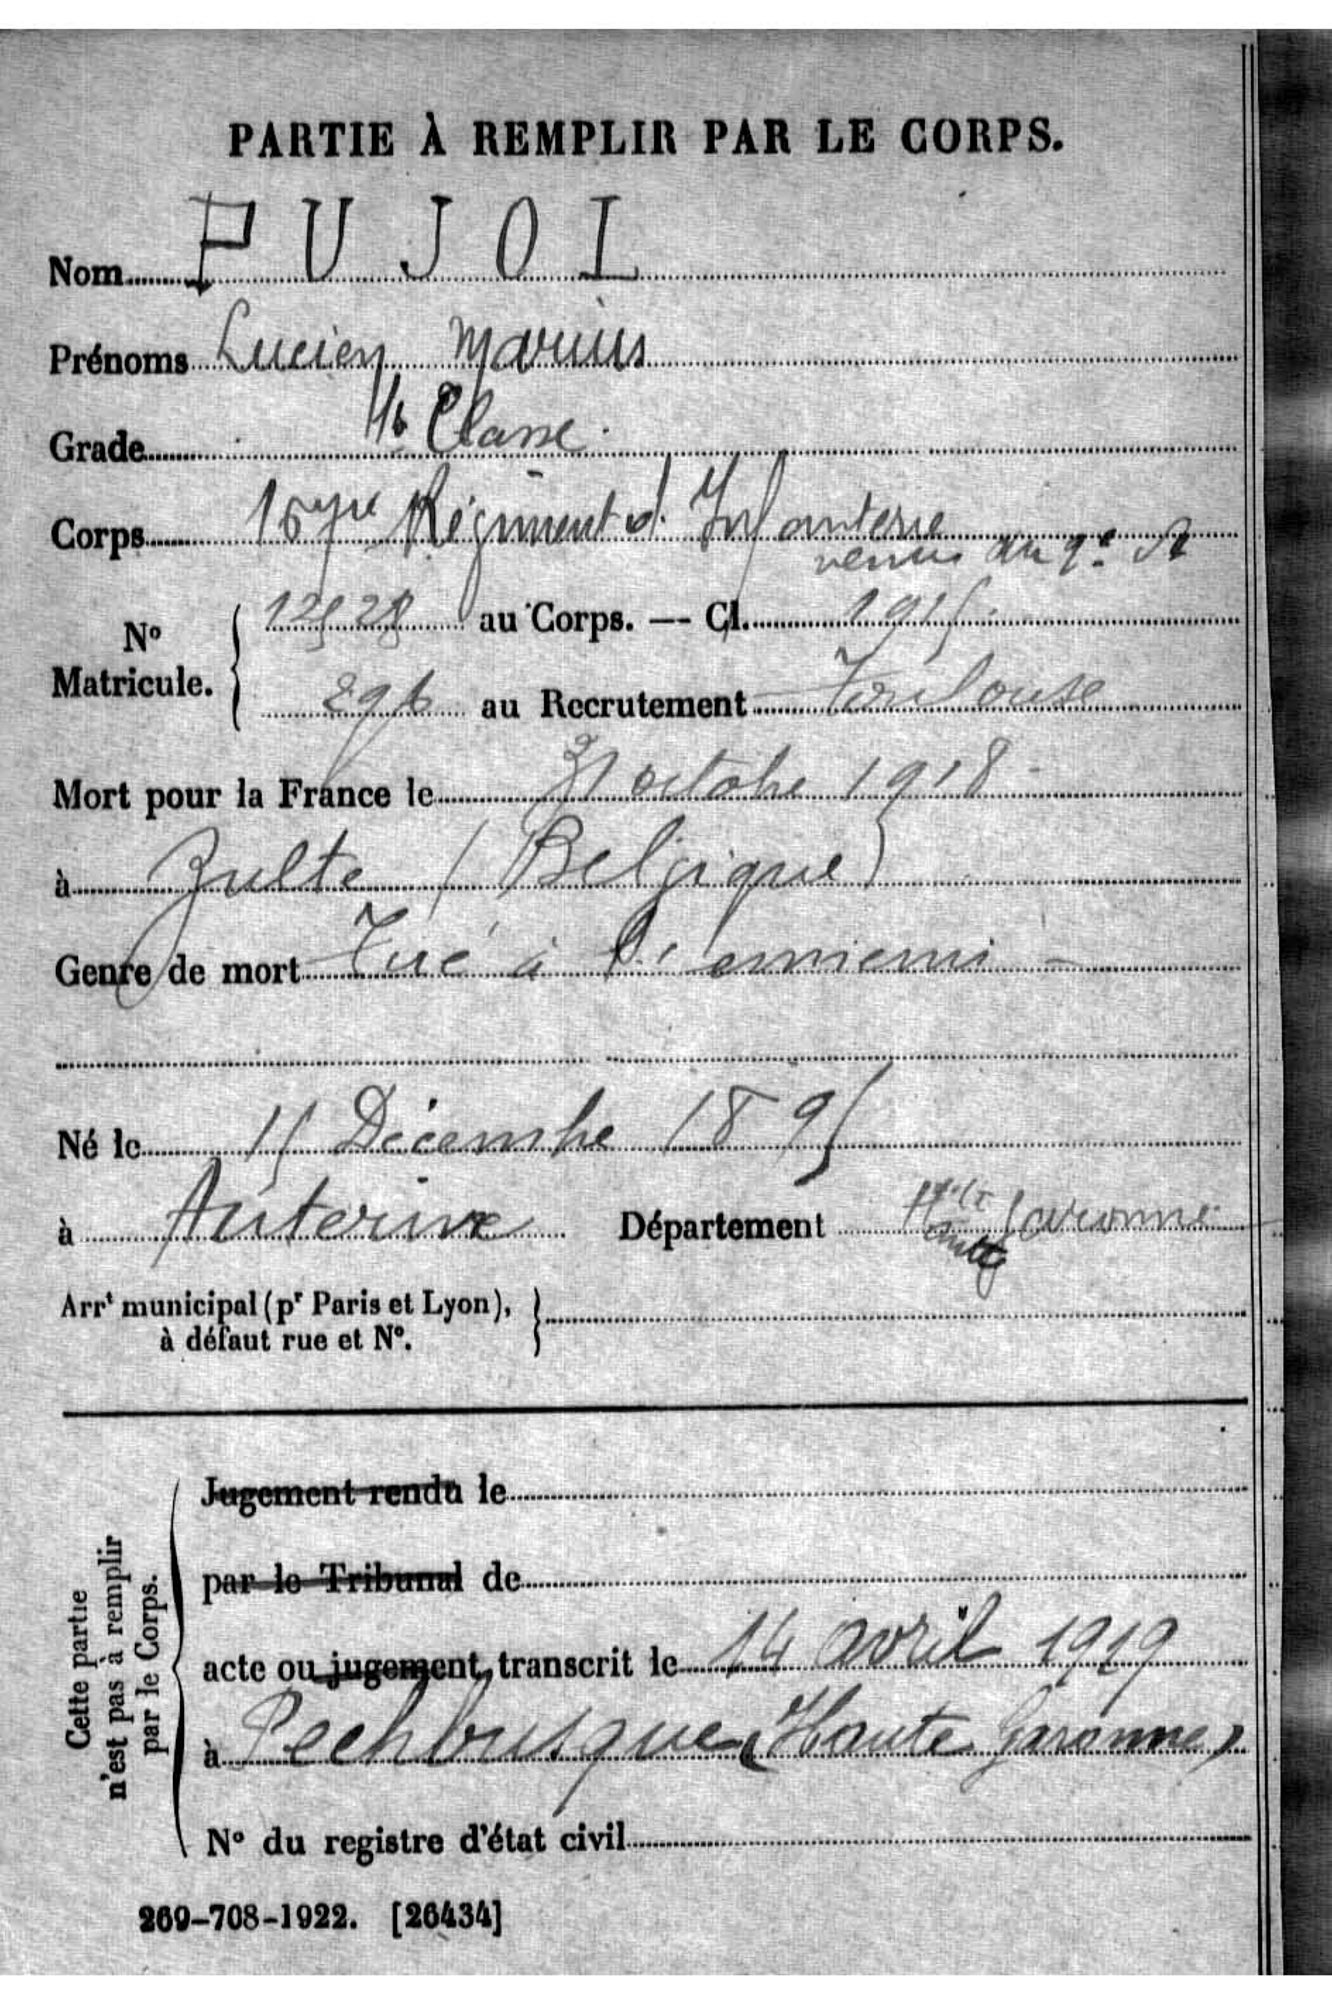 PARTIE À REMPLIR PAR LE CORPS.
Nom PUJOL
Prénoms Lucien Marius
Grade Classe
Corps Régiment d' Infanterie
venu du 9e
No Matricule. au Corps. — Cl. 1915
896 au Recrutement Toulouse
Mort pour la France le 31 octobre 1918
à Zulte (Belgique)
Genre de mort Tué à l'ennemi
Né le 15 Décembre 1895
à Auterive Département Hte Garonne
Arrt municipal (pr Paris et Lyon),
à défaut rue et No.
Cette partie
n'est pas à remplir
par le Corps.
Jugement rendu le
par le Tribunal de
acte ou jugement, transcrit le 14 avril 1919
à Pechbusque (Haute Garonne)
No du registre d'état civil
269-708-1922. [26434]